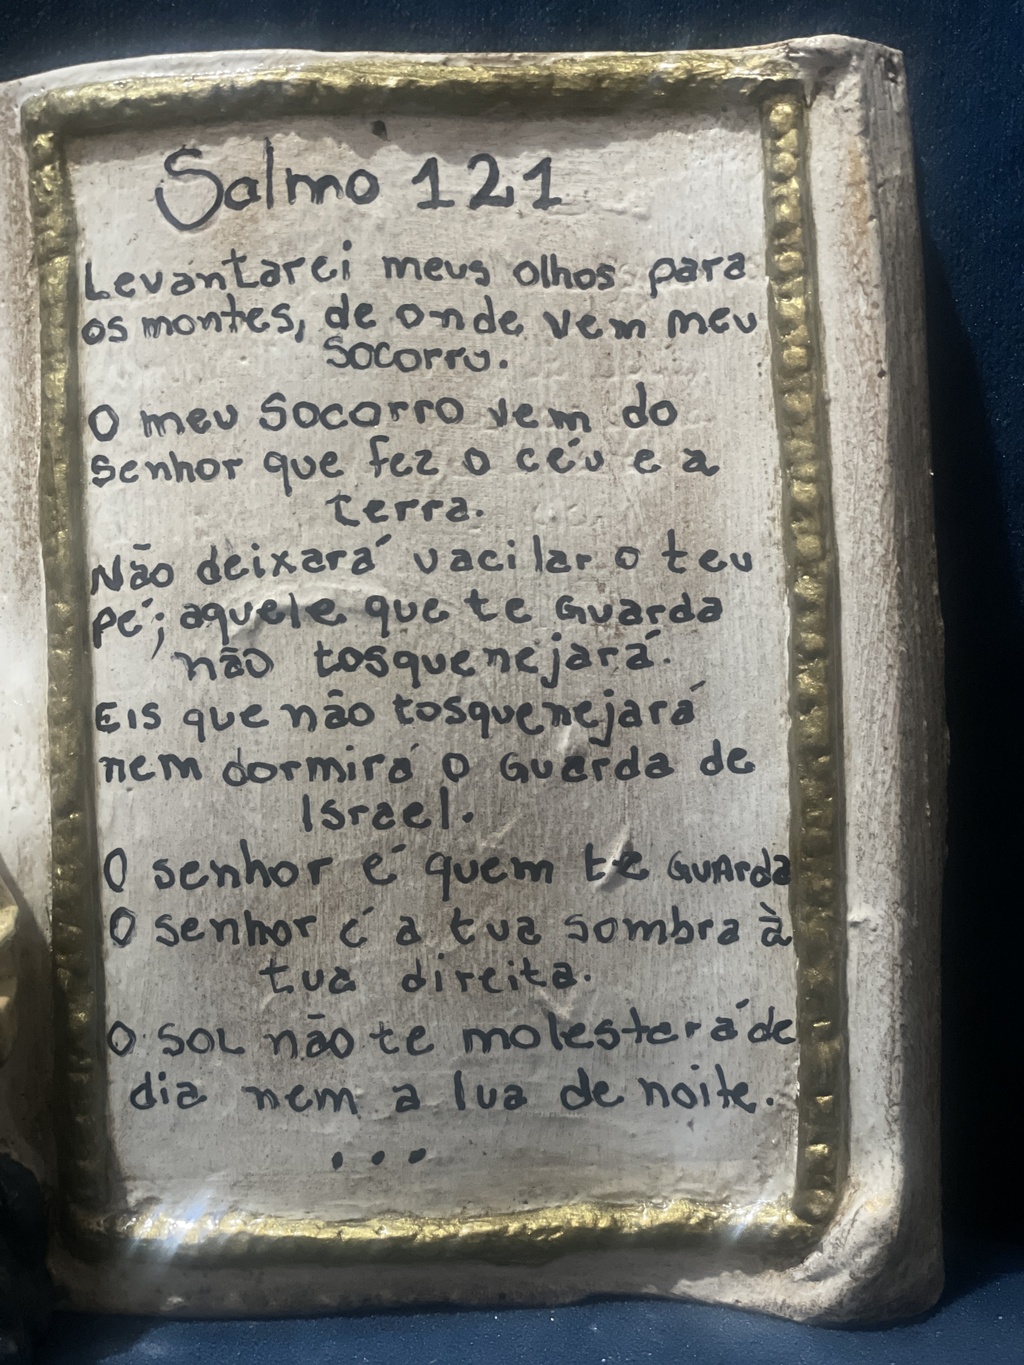 Salmo 121
Levantarei meus olhos para
os montes, de onde vem meu
socorro.
O meu socorro vem do
senhor que fez o céu e a
terra.
Não deixará vacilar o teu
pé; aquele que te guarda
não tosquenejará.
Eis que não tosquenejará
nem dormirá o guarda de
Israel.
O senhor é quem te guarda
O senhor é a tua sombra à
tua direita.
O sol não te molestará de
dia nem a lua de noite.
...